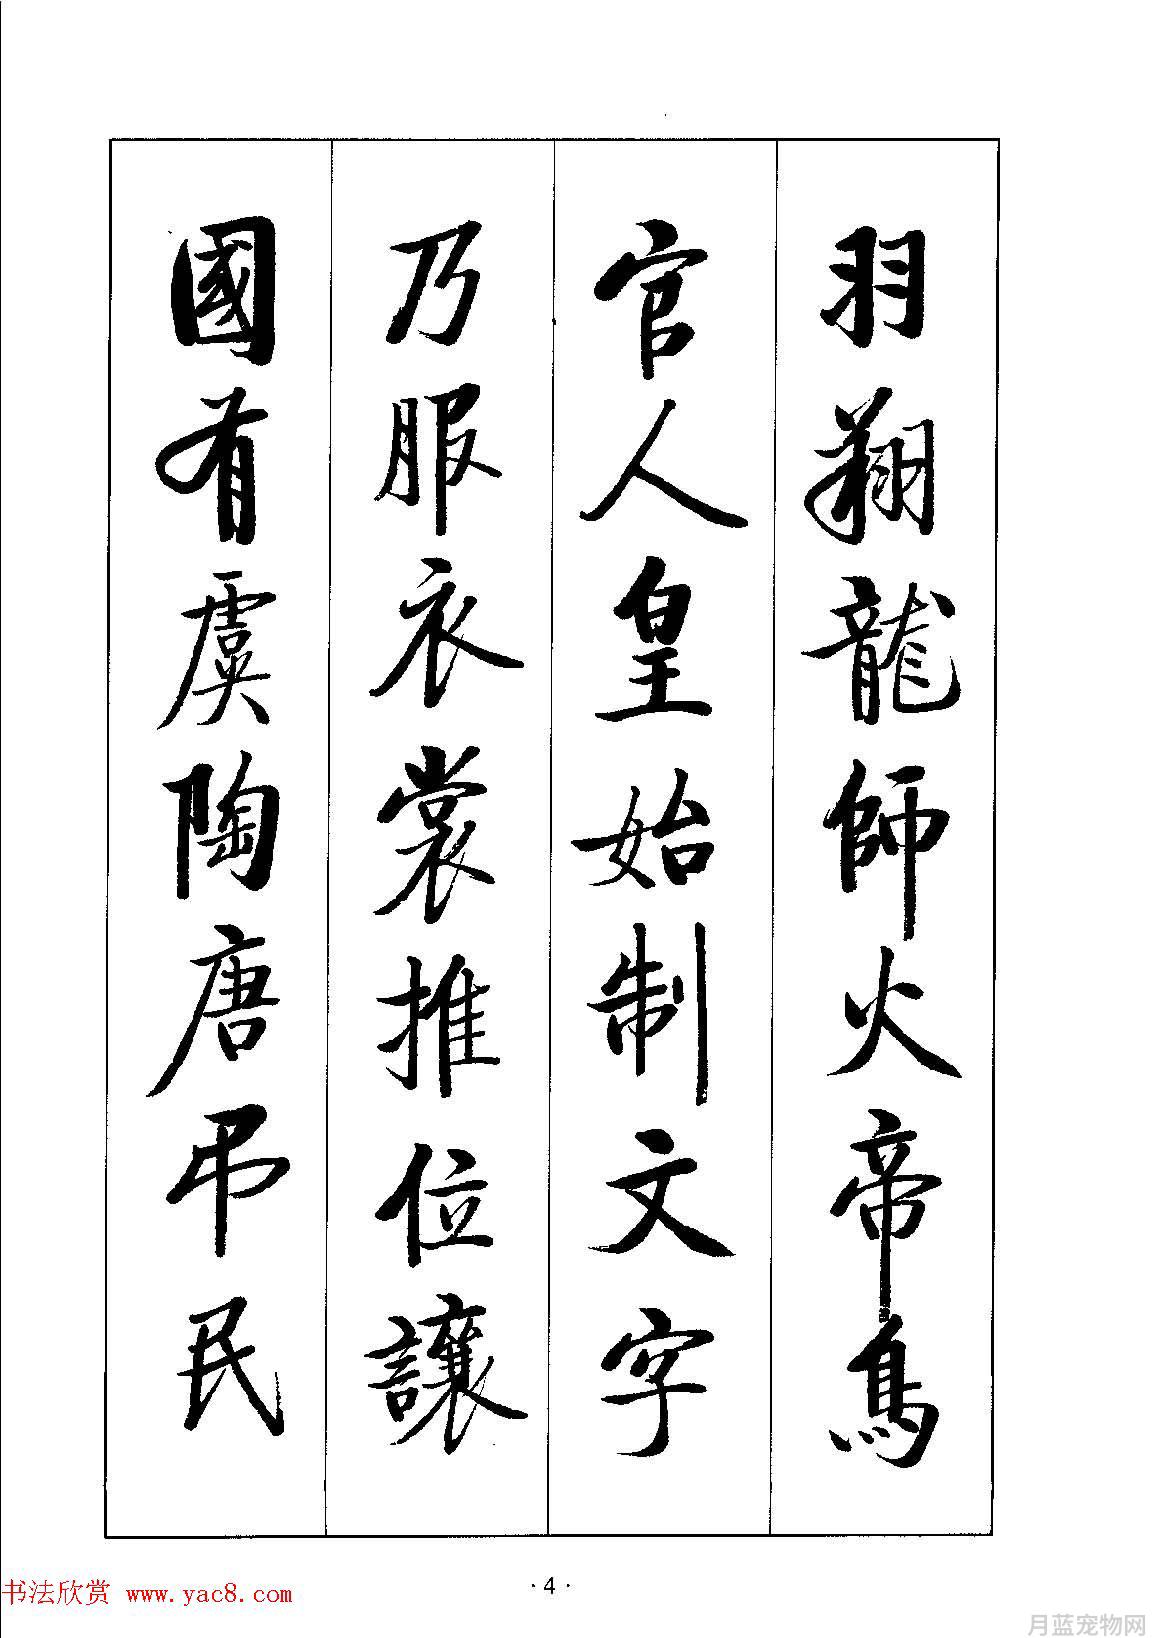 羽翔龍師火帝鳥
官人皇始制文字
乃服衣裳推位讓
國有虞陶唐弔民
·4·
书法欣赏 www.yac8.com
月蓝宠物网